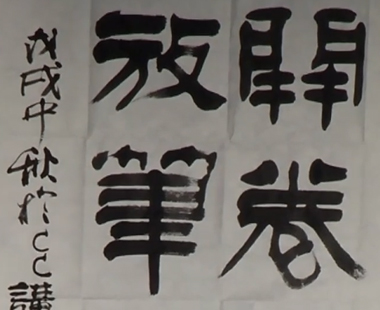 開卷
放筆
戊戌中秋於CC講